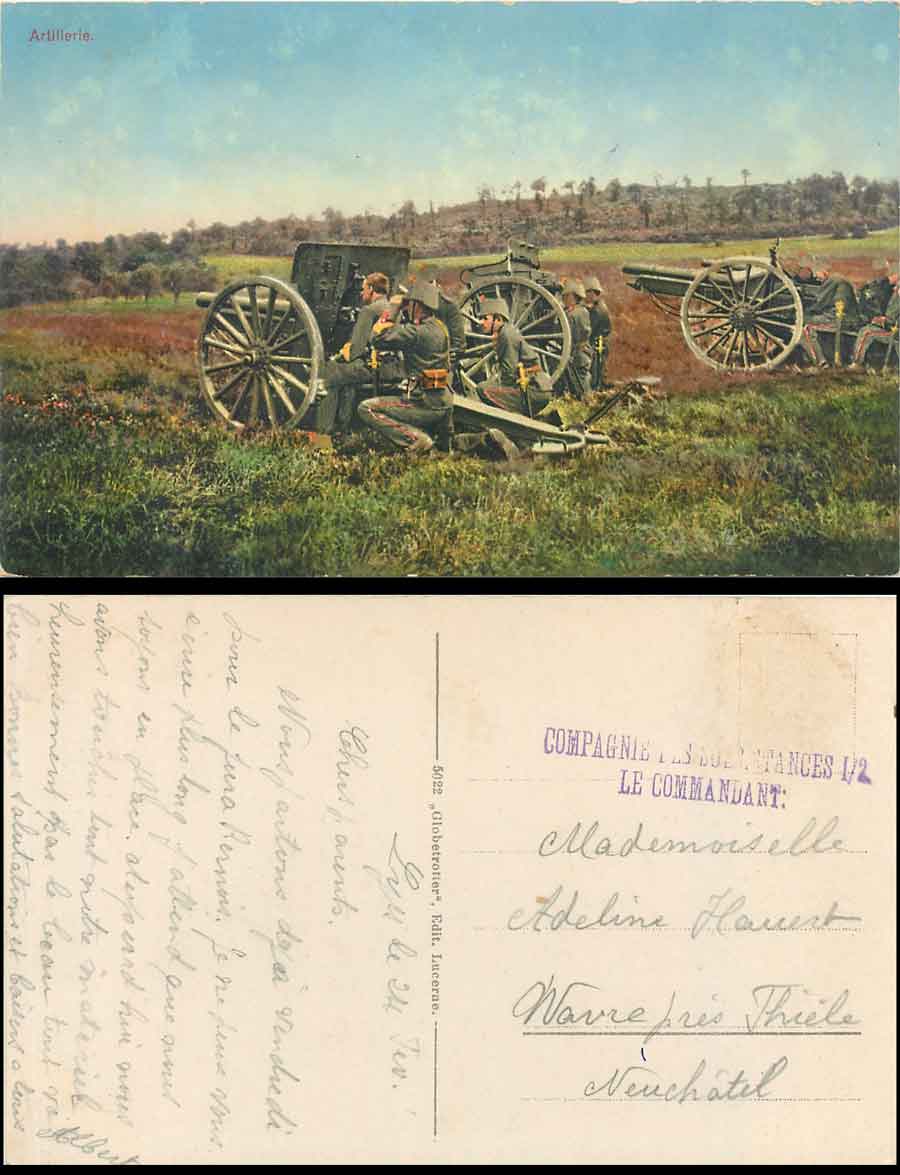 Artillerie.
5022 „Globetrotter“, Edit. Lucerne.
COMPAGNIE DES SUBSISTANCES I/2
LE COMMANDANT:
Mademoiselle
Adeline
Wavre près Thièle
Neuchâtel
le 21 Fév.
Chers parents.
Nous partons déjà vendredi
pour le Jura Bernois. Je ne peux vous
écrire plus long j'attend que nous
soyons en place. aujourd'hui nous
avons touché tout notre matériel
heureusement pas le beau
bien bonnes salutations et baisers a tous
Albert